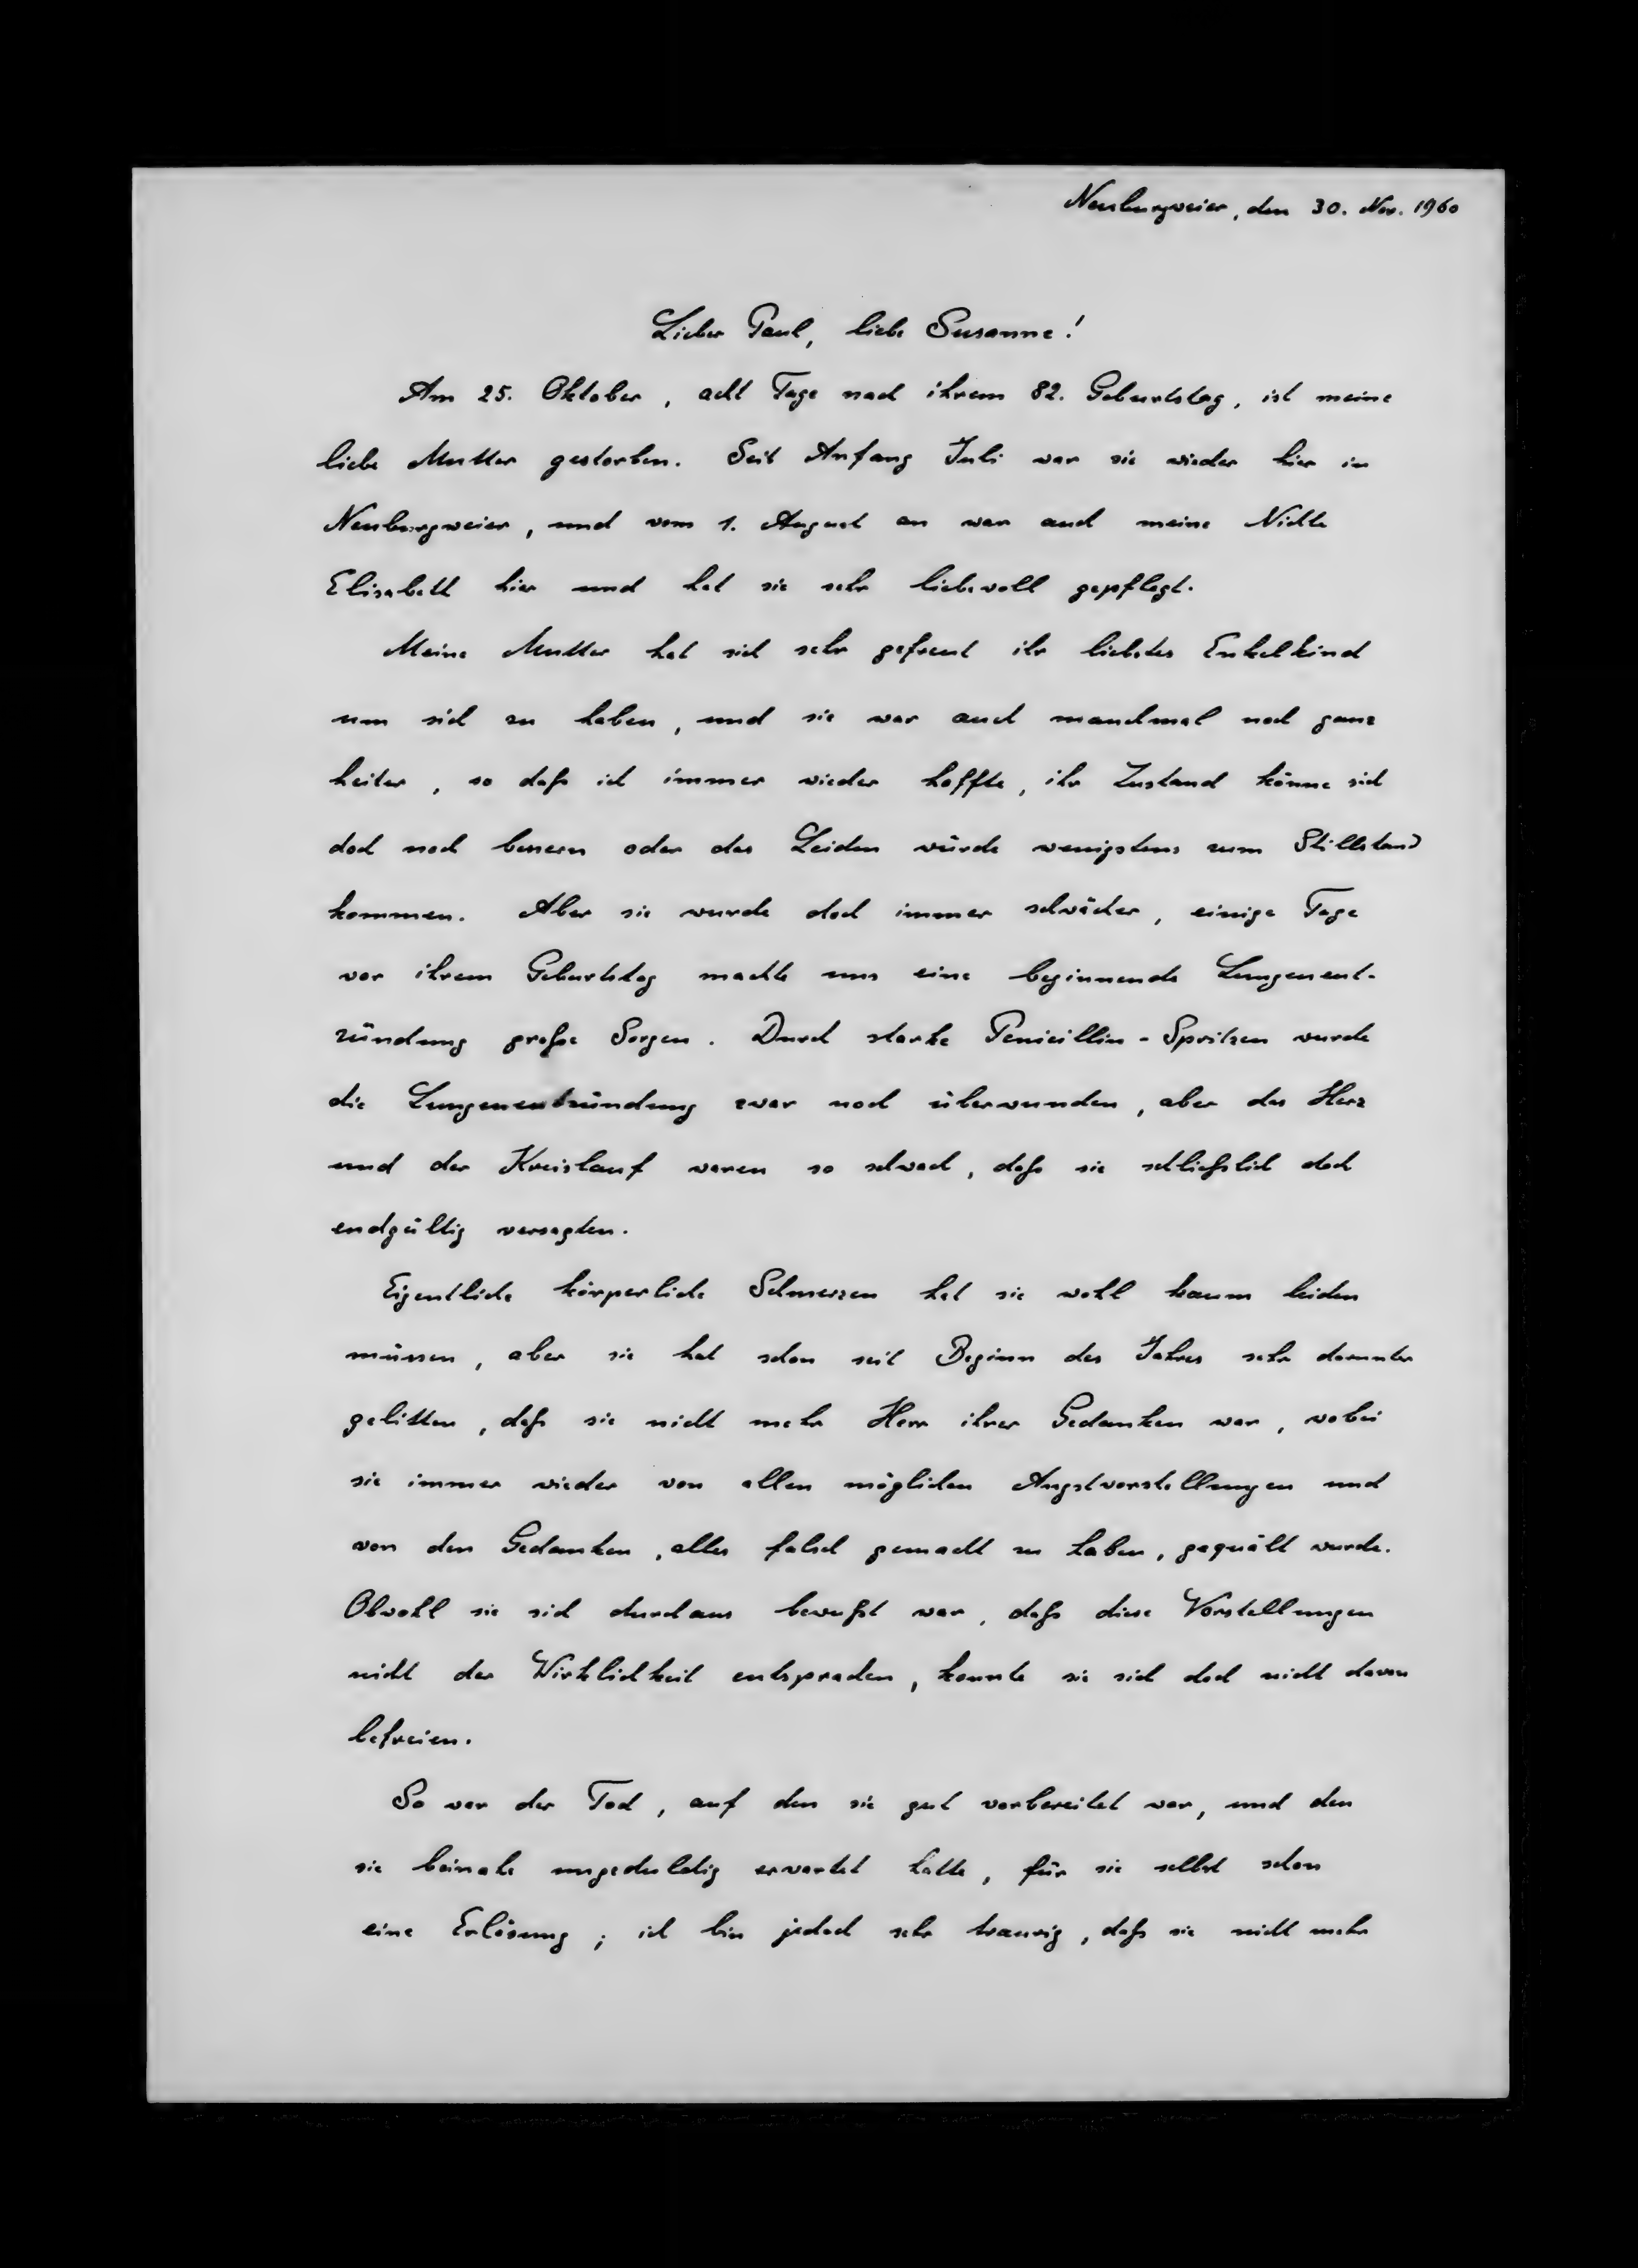 Neuburgweier, den 30. Nov. 1960
Lieber Paul, liebe Susanne!
Am 25. Oktober, acht Tage nach ihrem 82. Geburtstag, ist meine
liebe Mutter gestorben. Seit Anfang Juli war sie wieder hier in
Neuburgweier, und vom 1. August an war auch meine Nichte
Elisabeth hier und hat sie sehr liebevoll gepflegt.
Meine Mutter hat sich sehr gefreut ihr liebstes Enkelkind
um sich zu haben, und sie war auch manchmal noch ganz
heiter, so daß ich immer wieder hoffte, ihr Zustand könne sich
doch noch bessern oder das Leiden würde wenigstens zum Stillstand
kommen. Aber sie wurde doch immer schwächer, einige Tage
vor ihrem Geburtstag machte uns eine beginnende Lungenent-
zündung große Sorgen. Durch starke Penicillin-Spritzen wurde
die Lungenentzündung zwar noch überwunden, aber das Herz
und der Kreislauf waren so schwach, daß sie schließlich doch
endgültig versagten.
Eigentliche körperliche Schmerzen hat sie wohl kaum leiden
müssen, aber sie hat schon seit Beginn des Jahres sehr darunter
gelitten, daß sie nicht mehr Herr ihrer Gedanken war, wobei
sie immer wieder von allen möglichen Angstvorstellungen und
von den Gedanken, alles falsch gemacht zu haben, gequält wurde.
Obwohl sie sich durchaus bewußt war, daß diese Vorstellungen
nicht der Wirklichkeit entsprachen, konnte sie sich doch nicht davon
befreien.
So war der Tod, auf den sie gut vorbereitet war, und den
sie beinahe ungeduldig erwartet hatte, für sie selbst schon
eine Erlösung; ich bin jedoch sehr traurig, daß sie nicht mehr